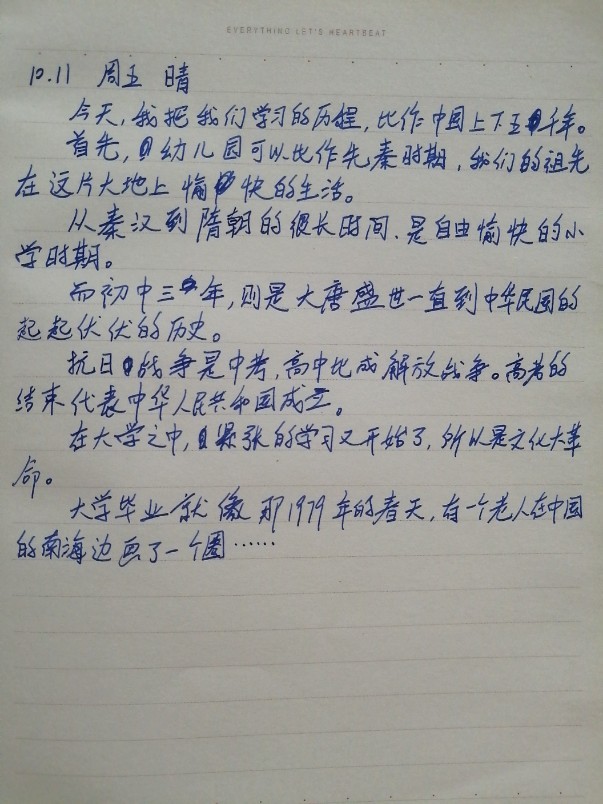 EVERYTHING LET'S HEARTBEAT
10.11 周五 晴
今天,我把我们学习的历程,比作中国上下五千年。
首先,幼儿园可以比作先秦时期,我们的祖先
在这片大地上愉快的生活。
从秦汉到隋朝的很长时间、是自由愉快的小
学时期。
而初中三年,则是大唐盛世一直到中华民国的
起起伏伏的历史。
抗日战争是中考,高中比成解放战争。高考的
结束代表中华人民共和国成立。
在大学之中,紧张的学习又开始了,所以是文化大革
命。
大学毕业就像那1979年的春天,有一个老人在中国
的南海边画了一个圈……